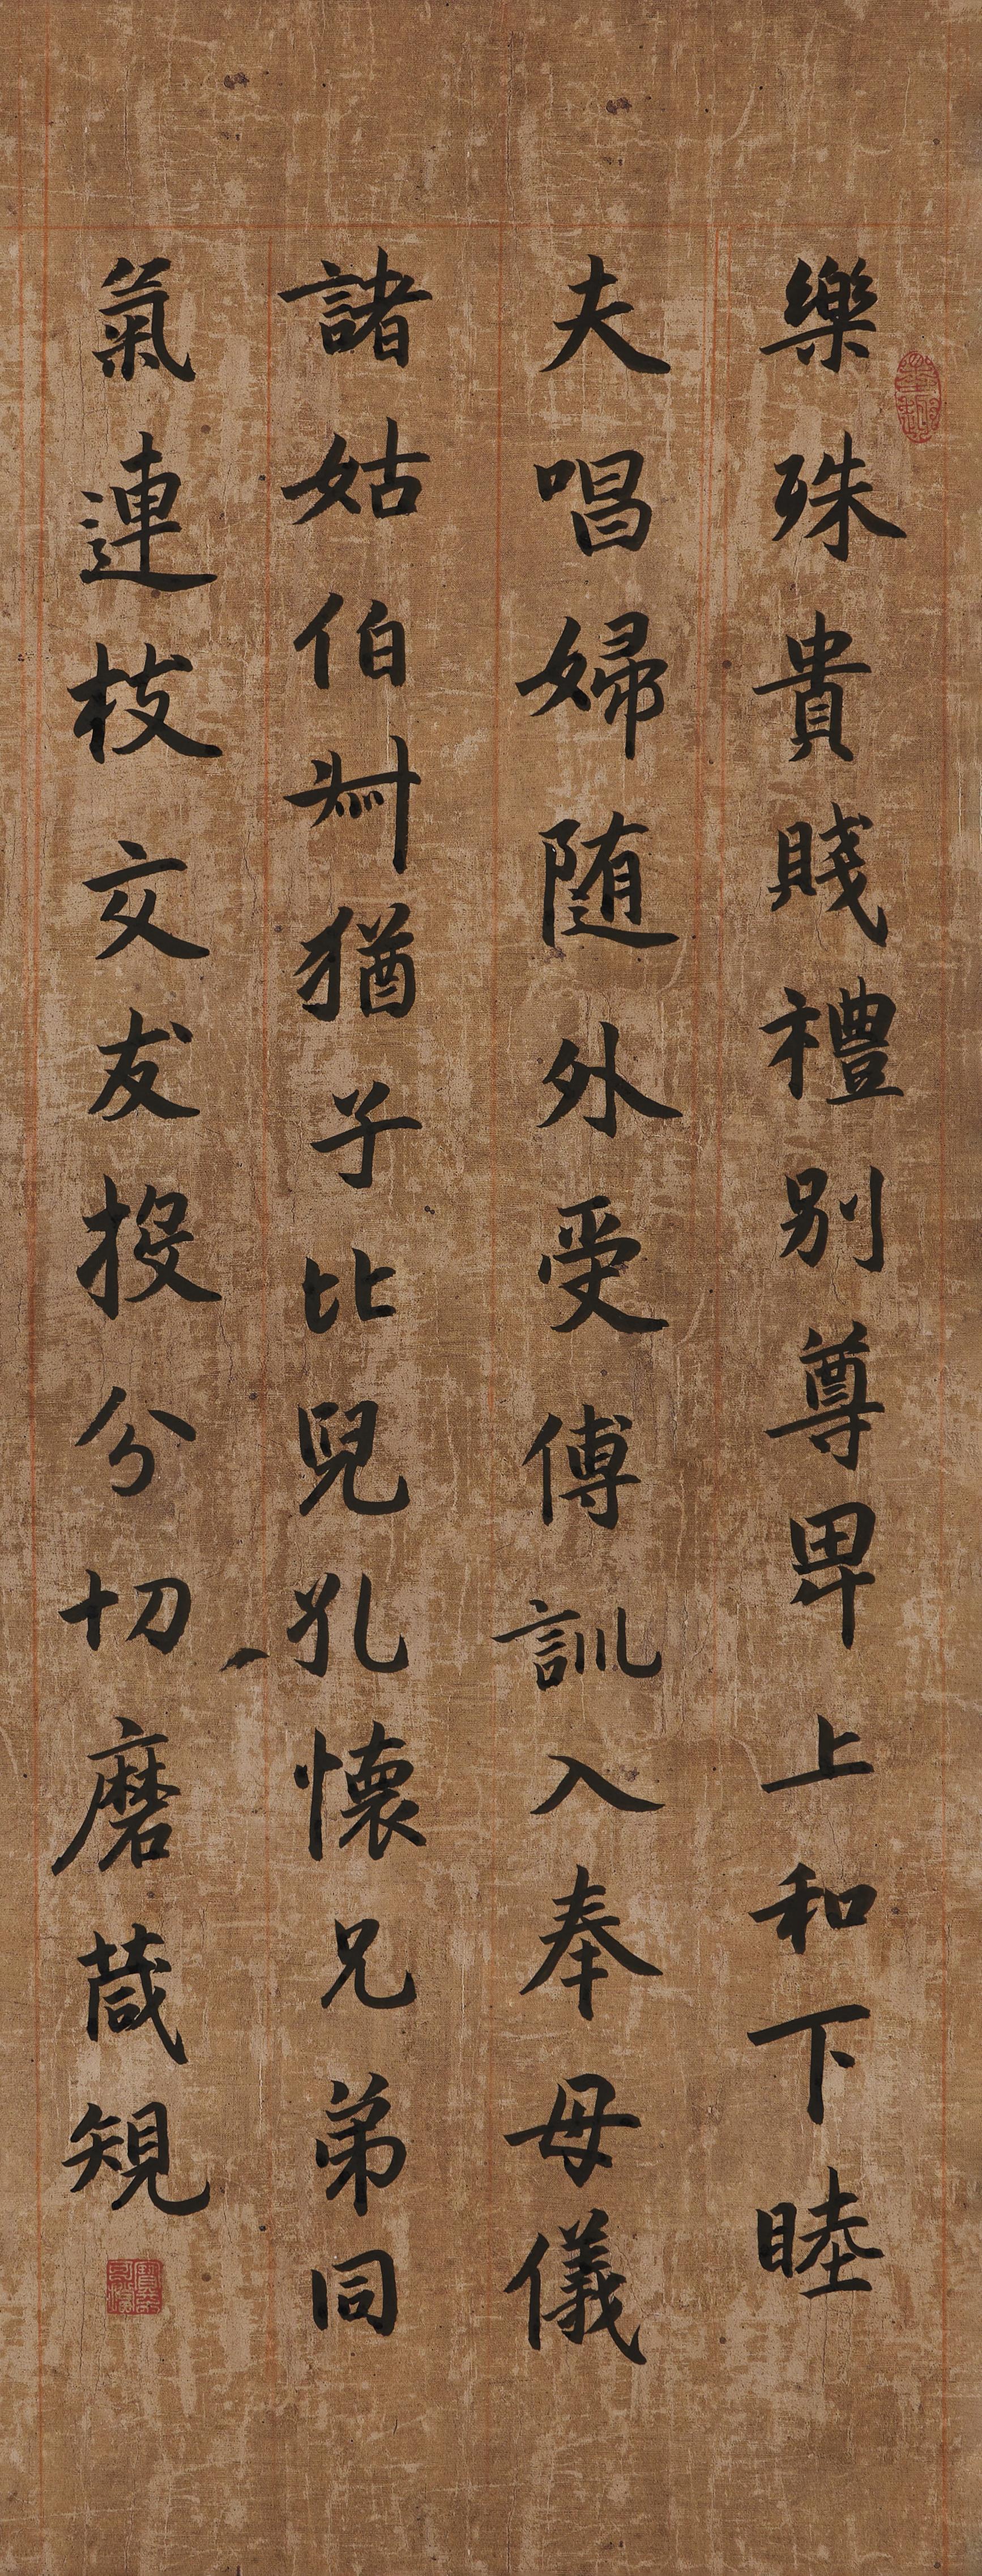 樂殊貴賤禮別尊卑上和下睦
夫唱婦随外受傅訓入奉母儀
諸姑伯叔猶子比兒孔懷兄弟同
氣連枝交友投分切磨葴規